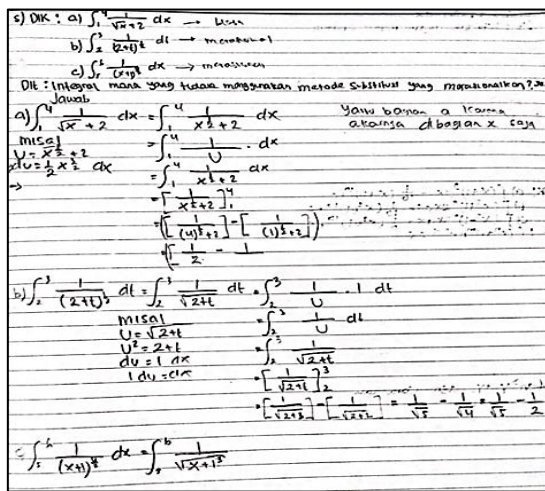 5) DIK : a) ∫₁⁴ 1/(√x+2) dx →
b) ∫₂³ 1/(2+t)^½ dt → merasional
c) ∫₅⁶ 1/(x+1) dx → merasional
Dit : Integral mana yang tidak menggunakan metode substitusi yang merasionalkan ?
Jawab
a) ∫₁⁴ 1/(√x + 2) dx = ∫₁⁴ 1/(x^½+2) dx
yaitu bagian a karena
akarnya dibagian x saja
misal
U = x^½ + 2
= ∫₁⁴ 1/U · dx
du = 1/2 x^½ dx
= ∫₁⁴ 1/(x^½+2) dx
→
= [1/(x^½+2)]₁⁴
= ([1/((4)^½+2)] - [1/((1)^½+2)])
= ([1/2 - 1
b) ∫₂³ 1/(2+t)^½ dt = ∫₂³ 1/√(2+t) dt = ∫₂³ 1/U · 1 dt
misal
U = √(2+t)
= ∫₂³ 1/U dt
U² = 2+t
= ∫₂³ 1/√(2+t)
du = 1 dx
1 du = dx
= [1/√(2+t)]₂³
= [1/√(2+3)] - [1/√(2+2)] = 1/√5 - 1/√4 = 1/√5 - 1/2
c ∫₅⁶ 1/(x+1) dx = ∫₅⁶ 1/√x+1³